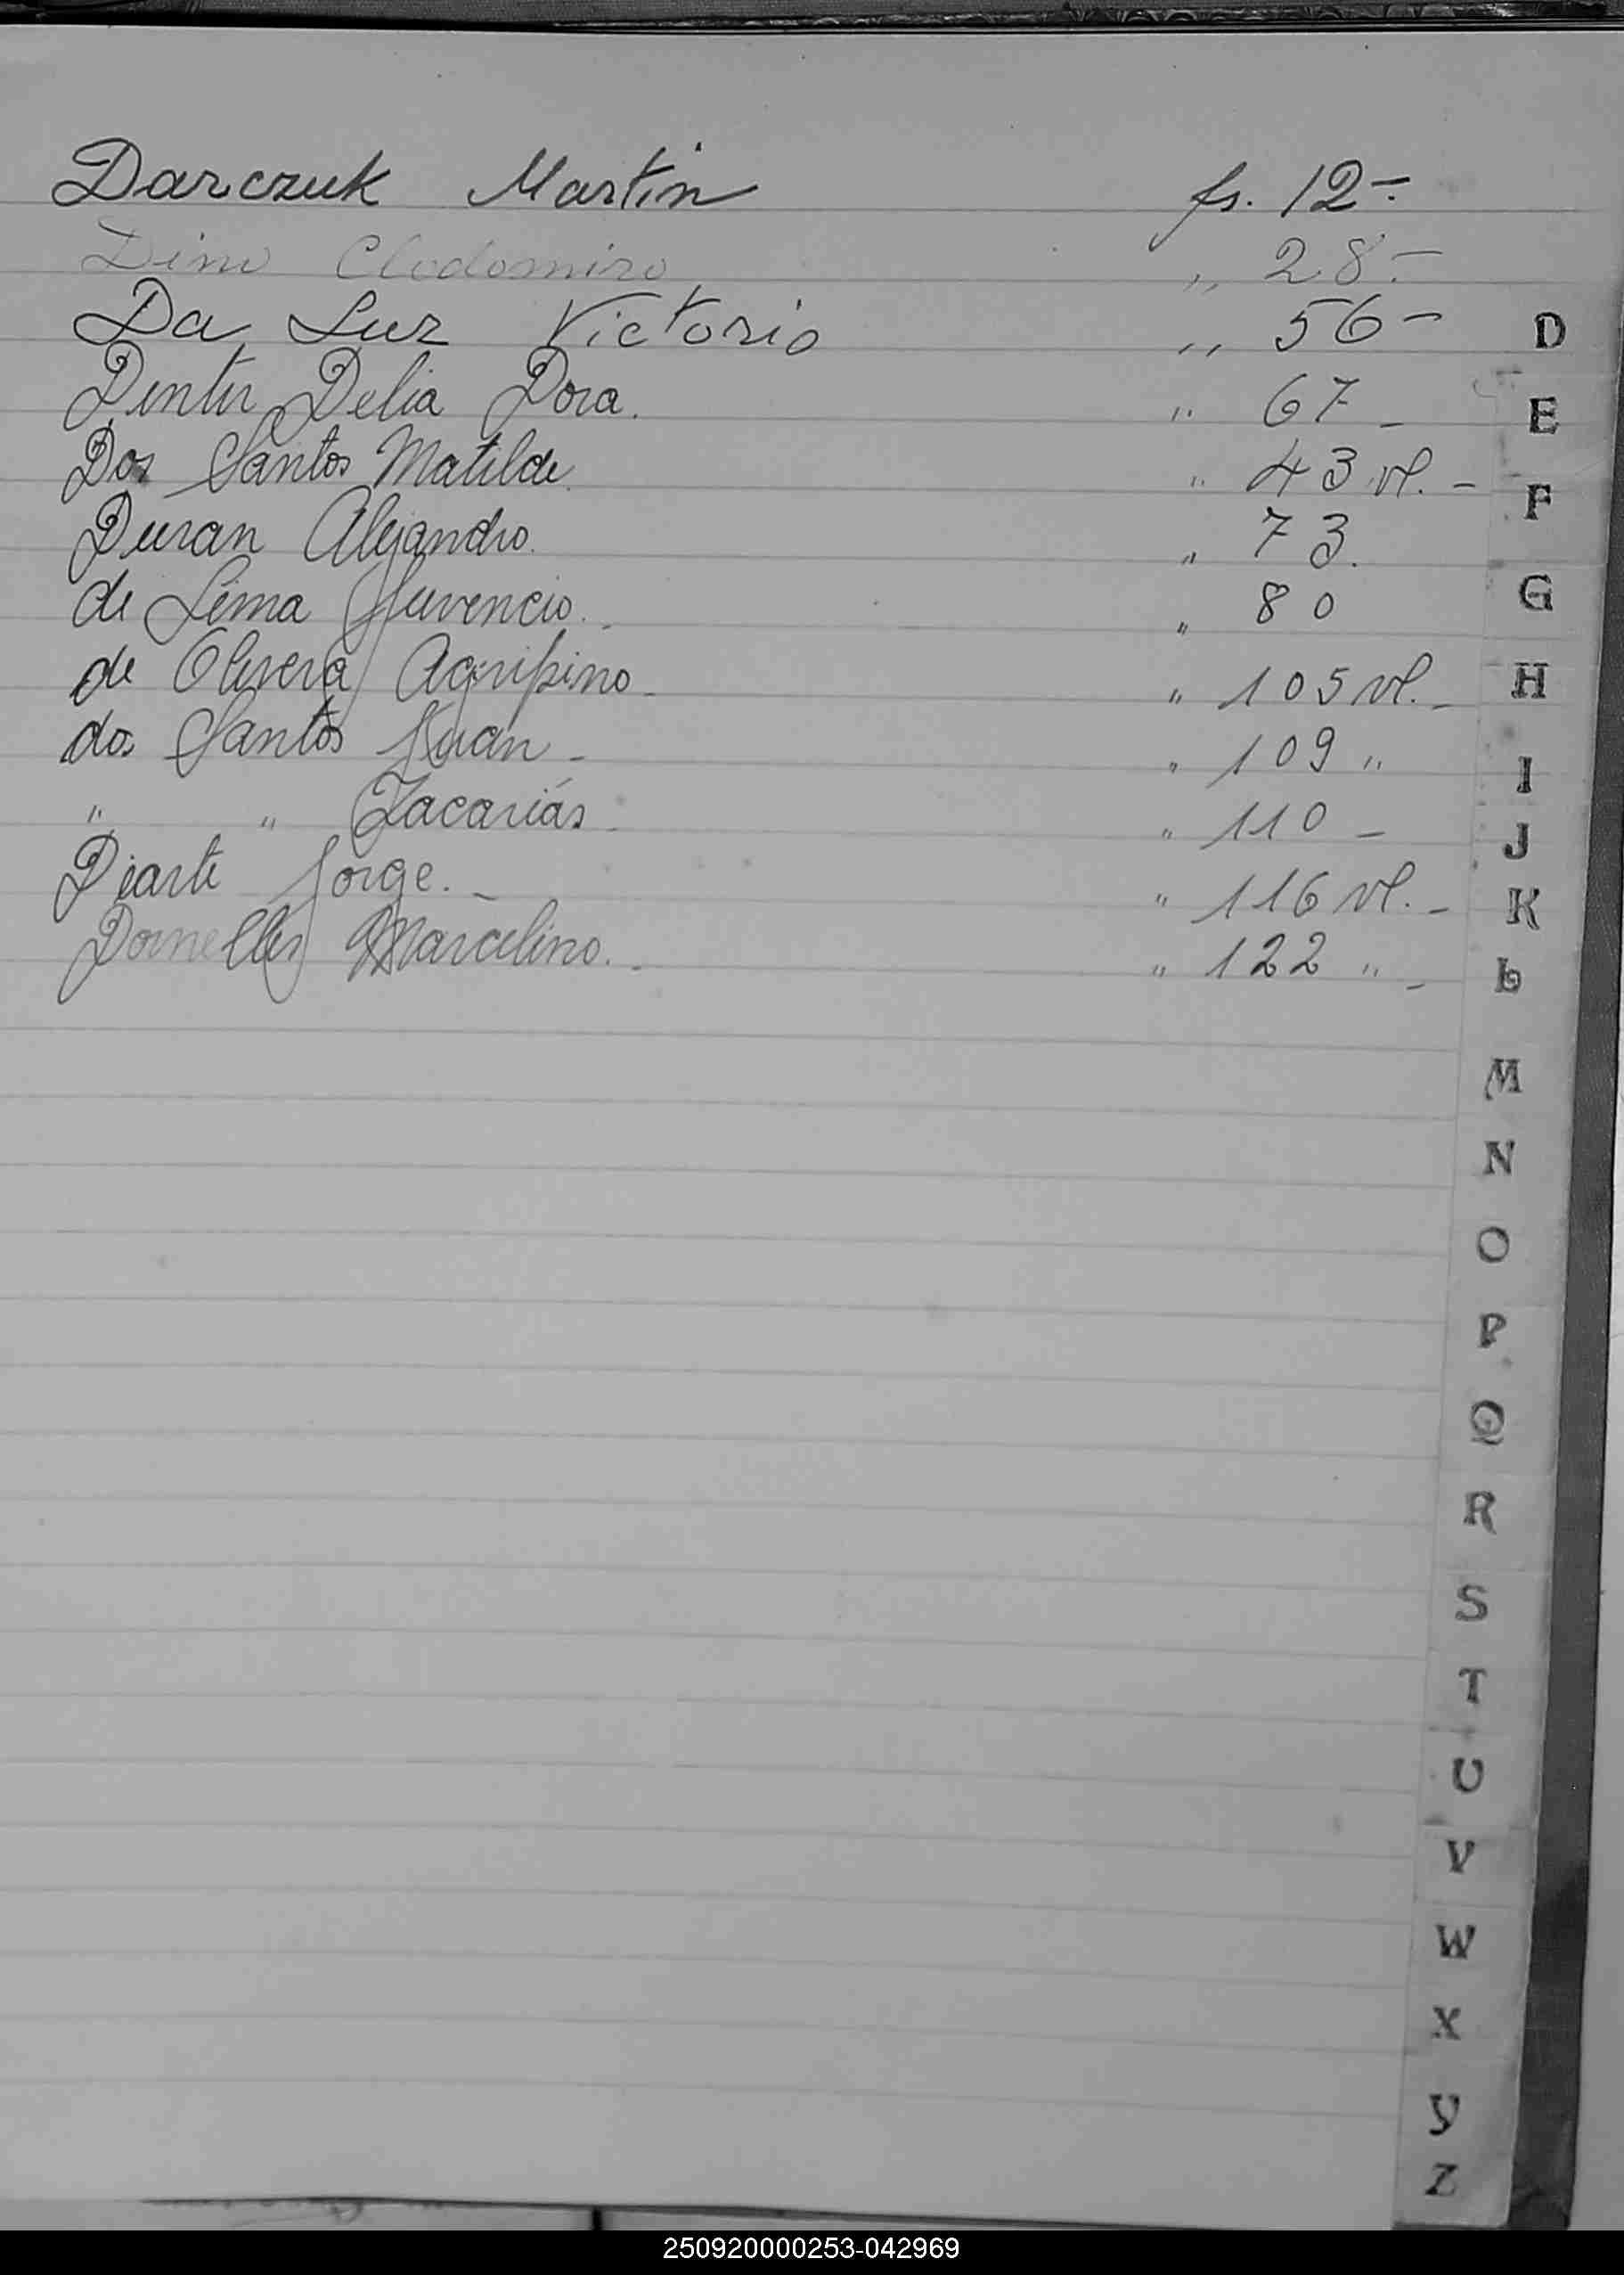 Darczuk Martin fs. 12-
Dino Clodomiro ,, 28.-
Da Luz Victorio ,, 56-
Denter Delia Dora. " 67 -
Dos Santos Matilde. " 43 vl. -
Duran Alejandro. " 73.
de Lima Juvencio. - " 80
de Olivera Agripino - " 105 vl. -
dos Santos Juan - " 109 "
" " Zacarías - " 110 -
Diarte Jorge. - " 116 vl. -
Dornelles Marcelino. - " 122 " -
D
E
F
G
H
I
J
K
L
M
N
O
P
Q
R
S
T
U
V
W
X
Y
Z
250920000253-042969